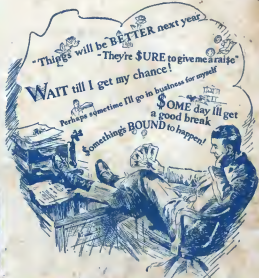 "Things will be BETTER next year"
"They're $URE to give me a rai$e"
WAIT till I get my chance!
Perhaps sometime I'll go in business for myself
$OME day I'll get
a good break
$omething's BOUND to happen!